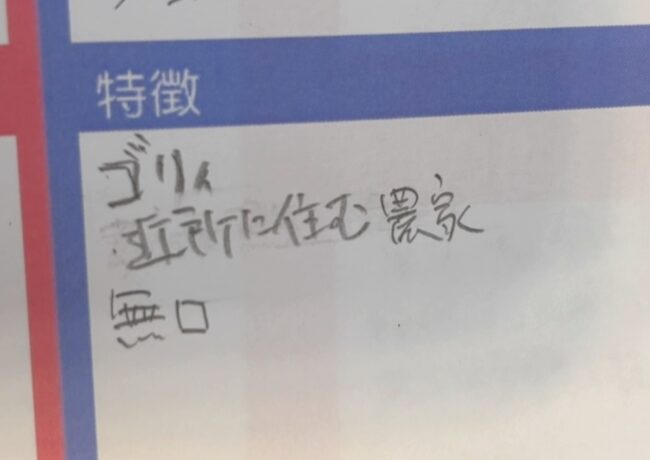 特徴
ゴリィ
近所に住む農家
無口